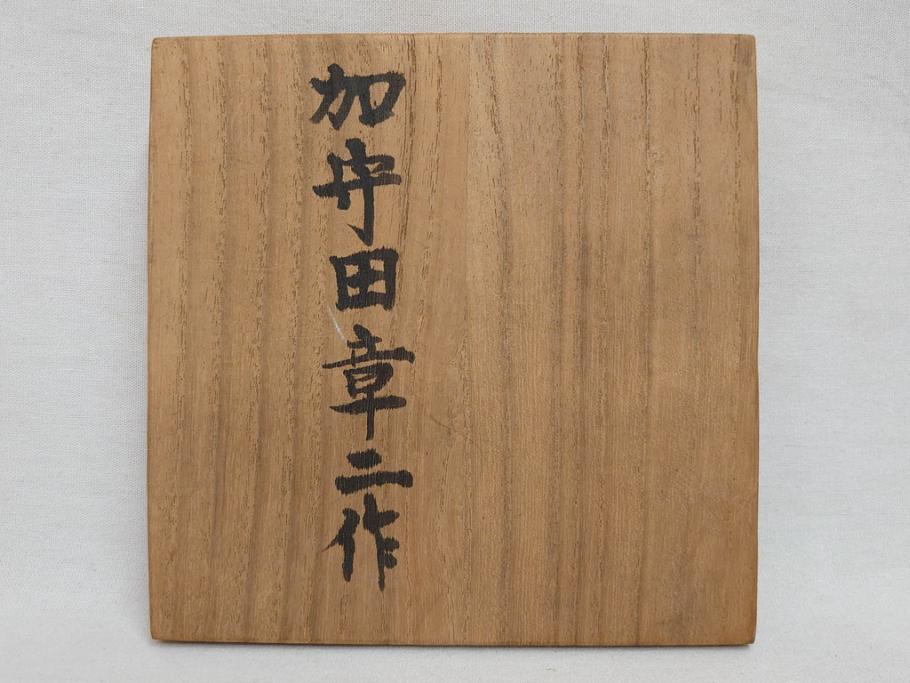 加守田章二作